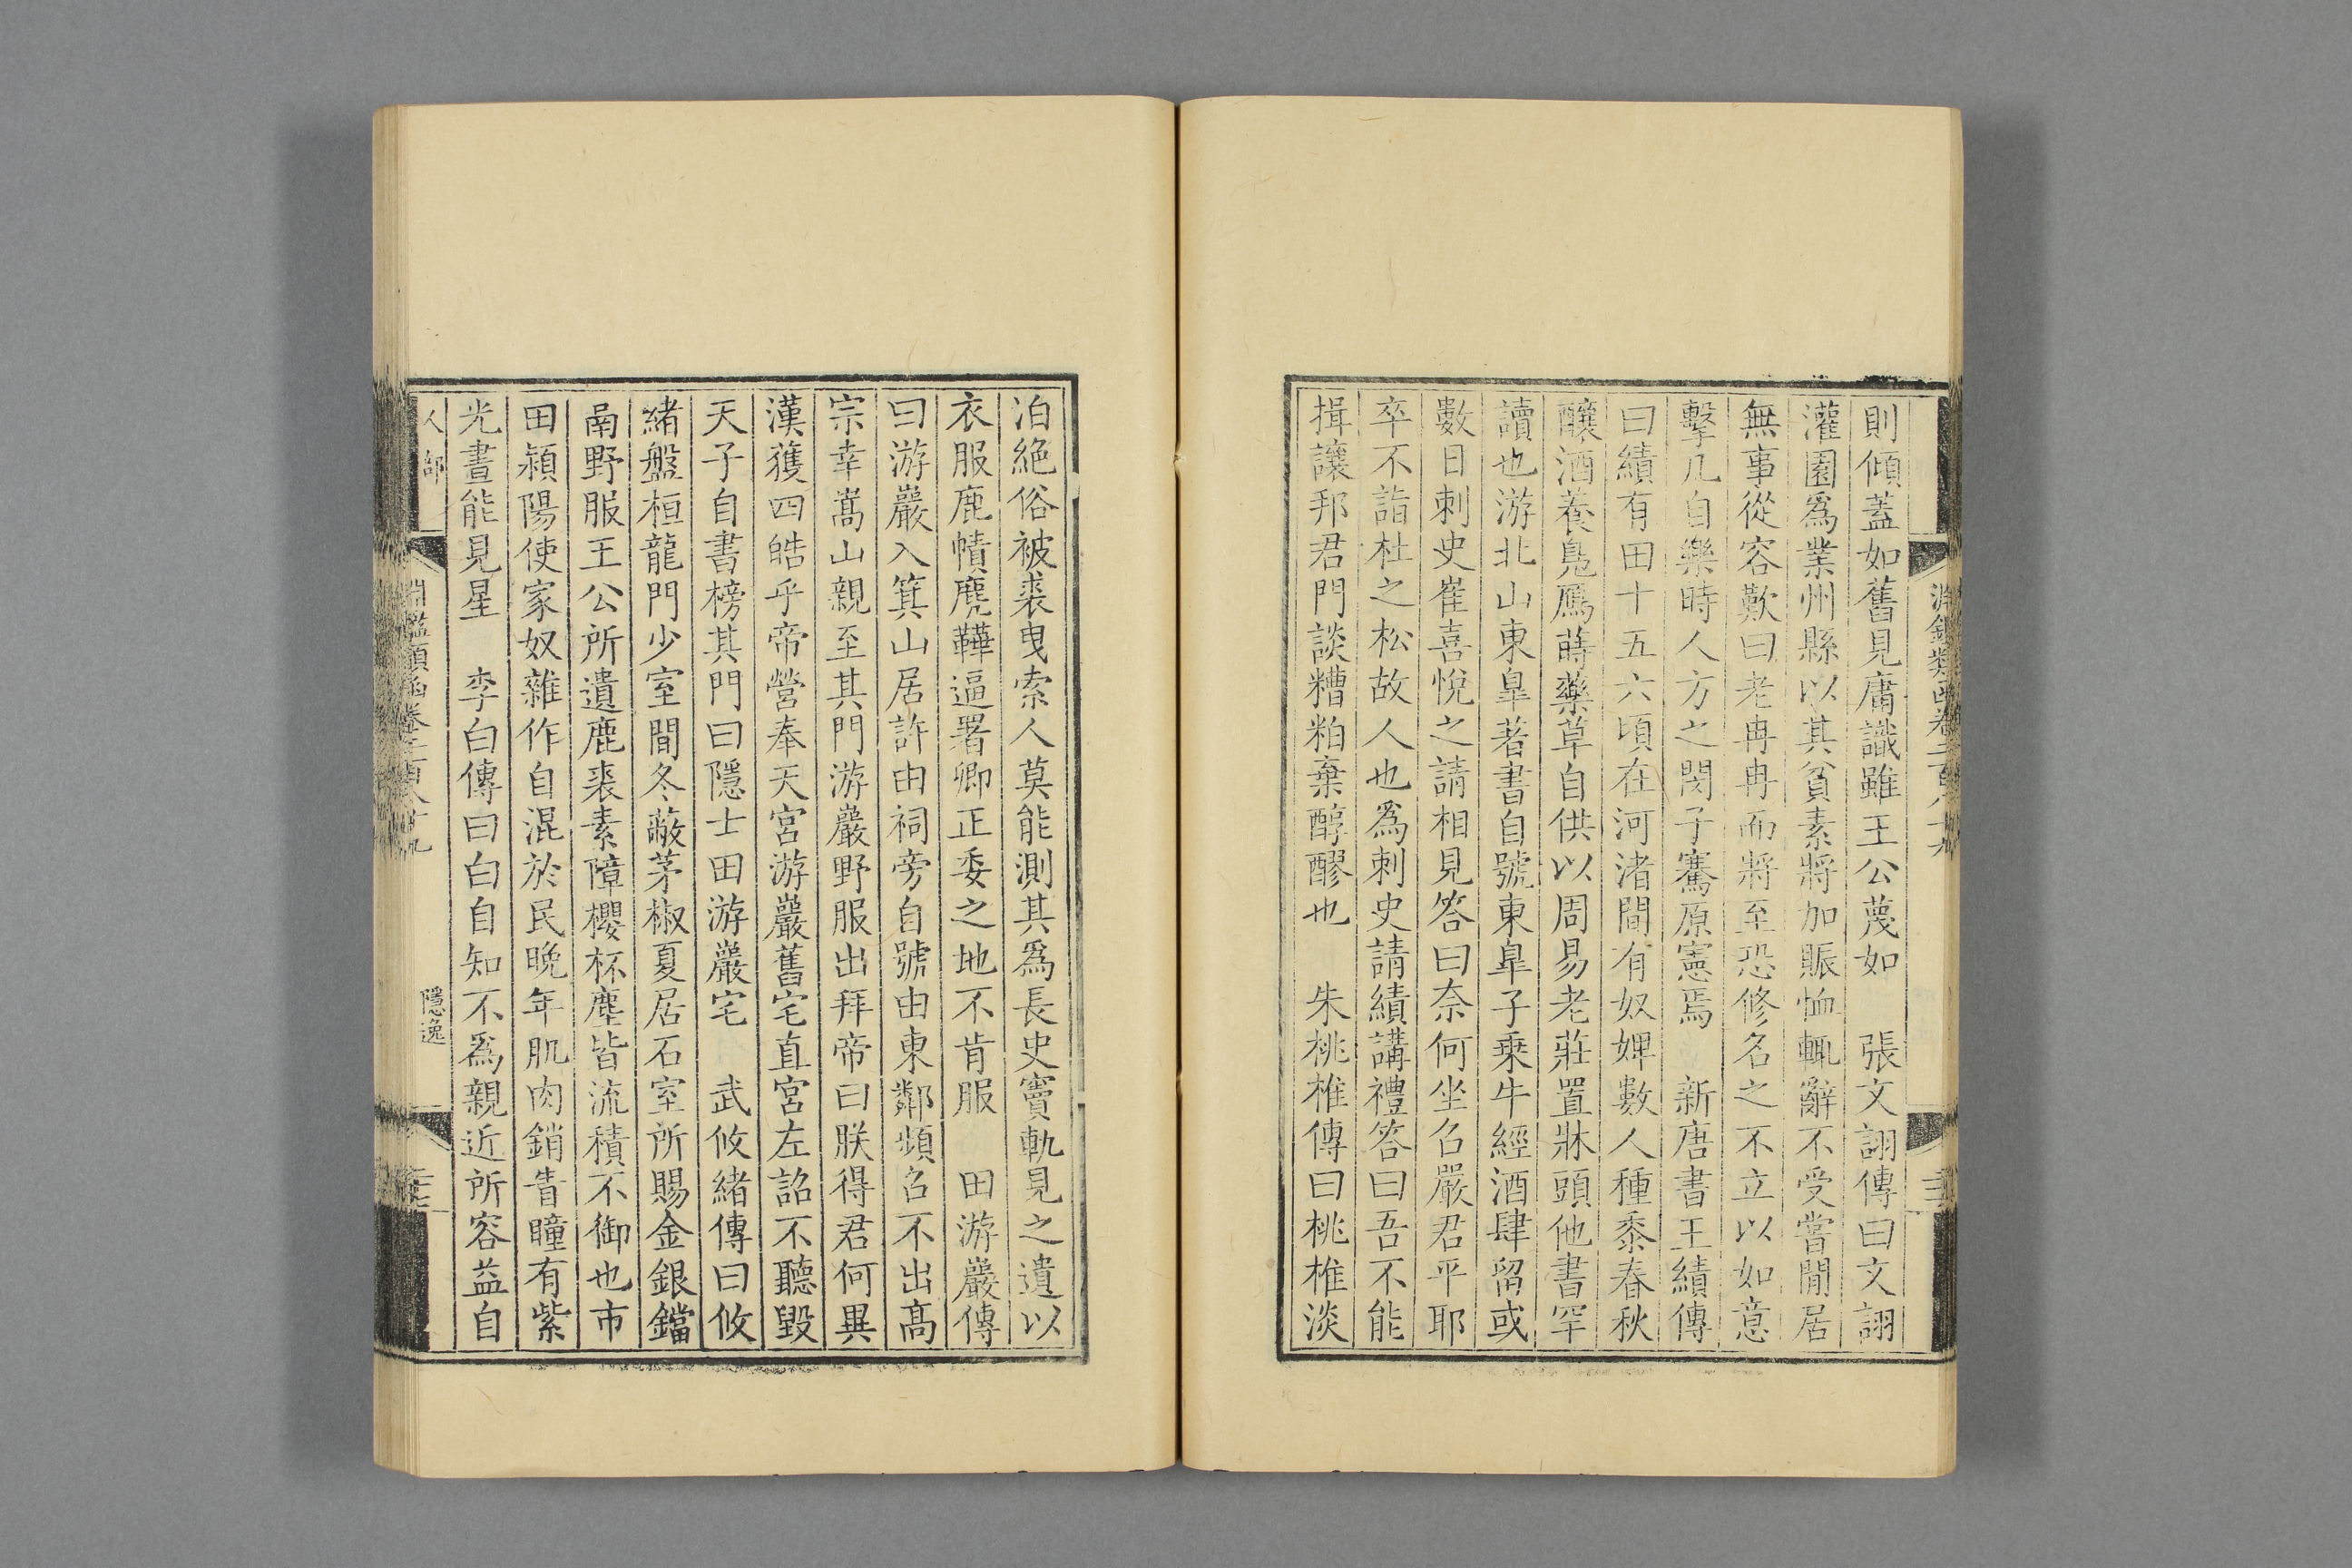 則傾蓋如舊見庸識雖王公蔑如　張文詡傳曰文詡
灌園爲業州縣以其貧素將加賑恤輒辭不受嘗閒居
無事從容歎曰老冉冉而將至恐修名之不立以如意
擊几自樂時人方之閔子騫原憲焉　新唐書王績傳
曰績有田十五六頃在河渚間有奴婢數人種黍春秋
釀酒養鳧鴈蒔藥草自供以周易老莊置牀頭他書罕
讀也游北山東臯著書自號東臯子乗牛經酒肆留或
數日刺史崔喜悅之請相見答曰奈何坐召嚴君平耶
卒不詣杜之松故人也爲刺史請績講禮答曰吾不能
揖讓邦君門談糟粕棄醇醪也　朱桃椎傳曰桃椎淡
泊絶俗被裘曳索人莫能測其爲長史竇軌見之遺以
衣服鹿幘麂鞾逼署鄉正委之地不肯服　田游巖傳
曰游巖入箕山居許由祠旁自號由東鄰頻召不出髙
宗幸嵩山親至其門游巖野服出拜帝曰朕得君何異
漢獲四皓乎帝營奉天宮游巖舊宅直宮左詔不聽毀
天子自書榜其門曰隱士田游巖宅　武攸緒傳曰攸
緒盤桓龍門少室間冬蔽茅椒夏居石室所賜金銀鐺
鬲野服王公所遺鹿裘素障櫻杯塵皆流積不御也市
田潁陽使家奴雜作自混於民晚年肌肉銷眚瞳有紫
光晝能見星　李白傳曰白自知不爲親近所容益自
人部
淵鑑類函卷二百八十九
隱逸